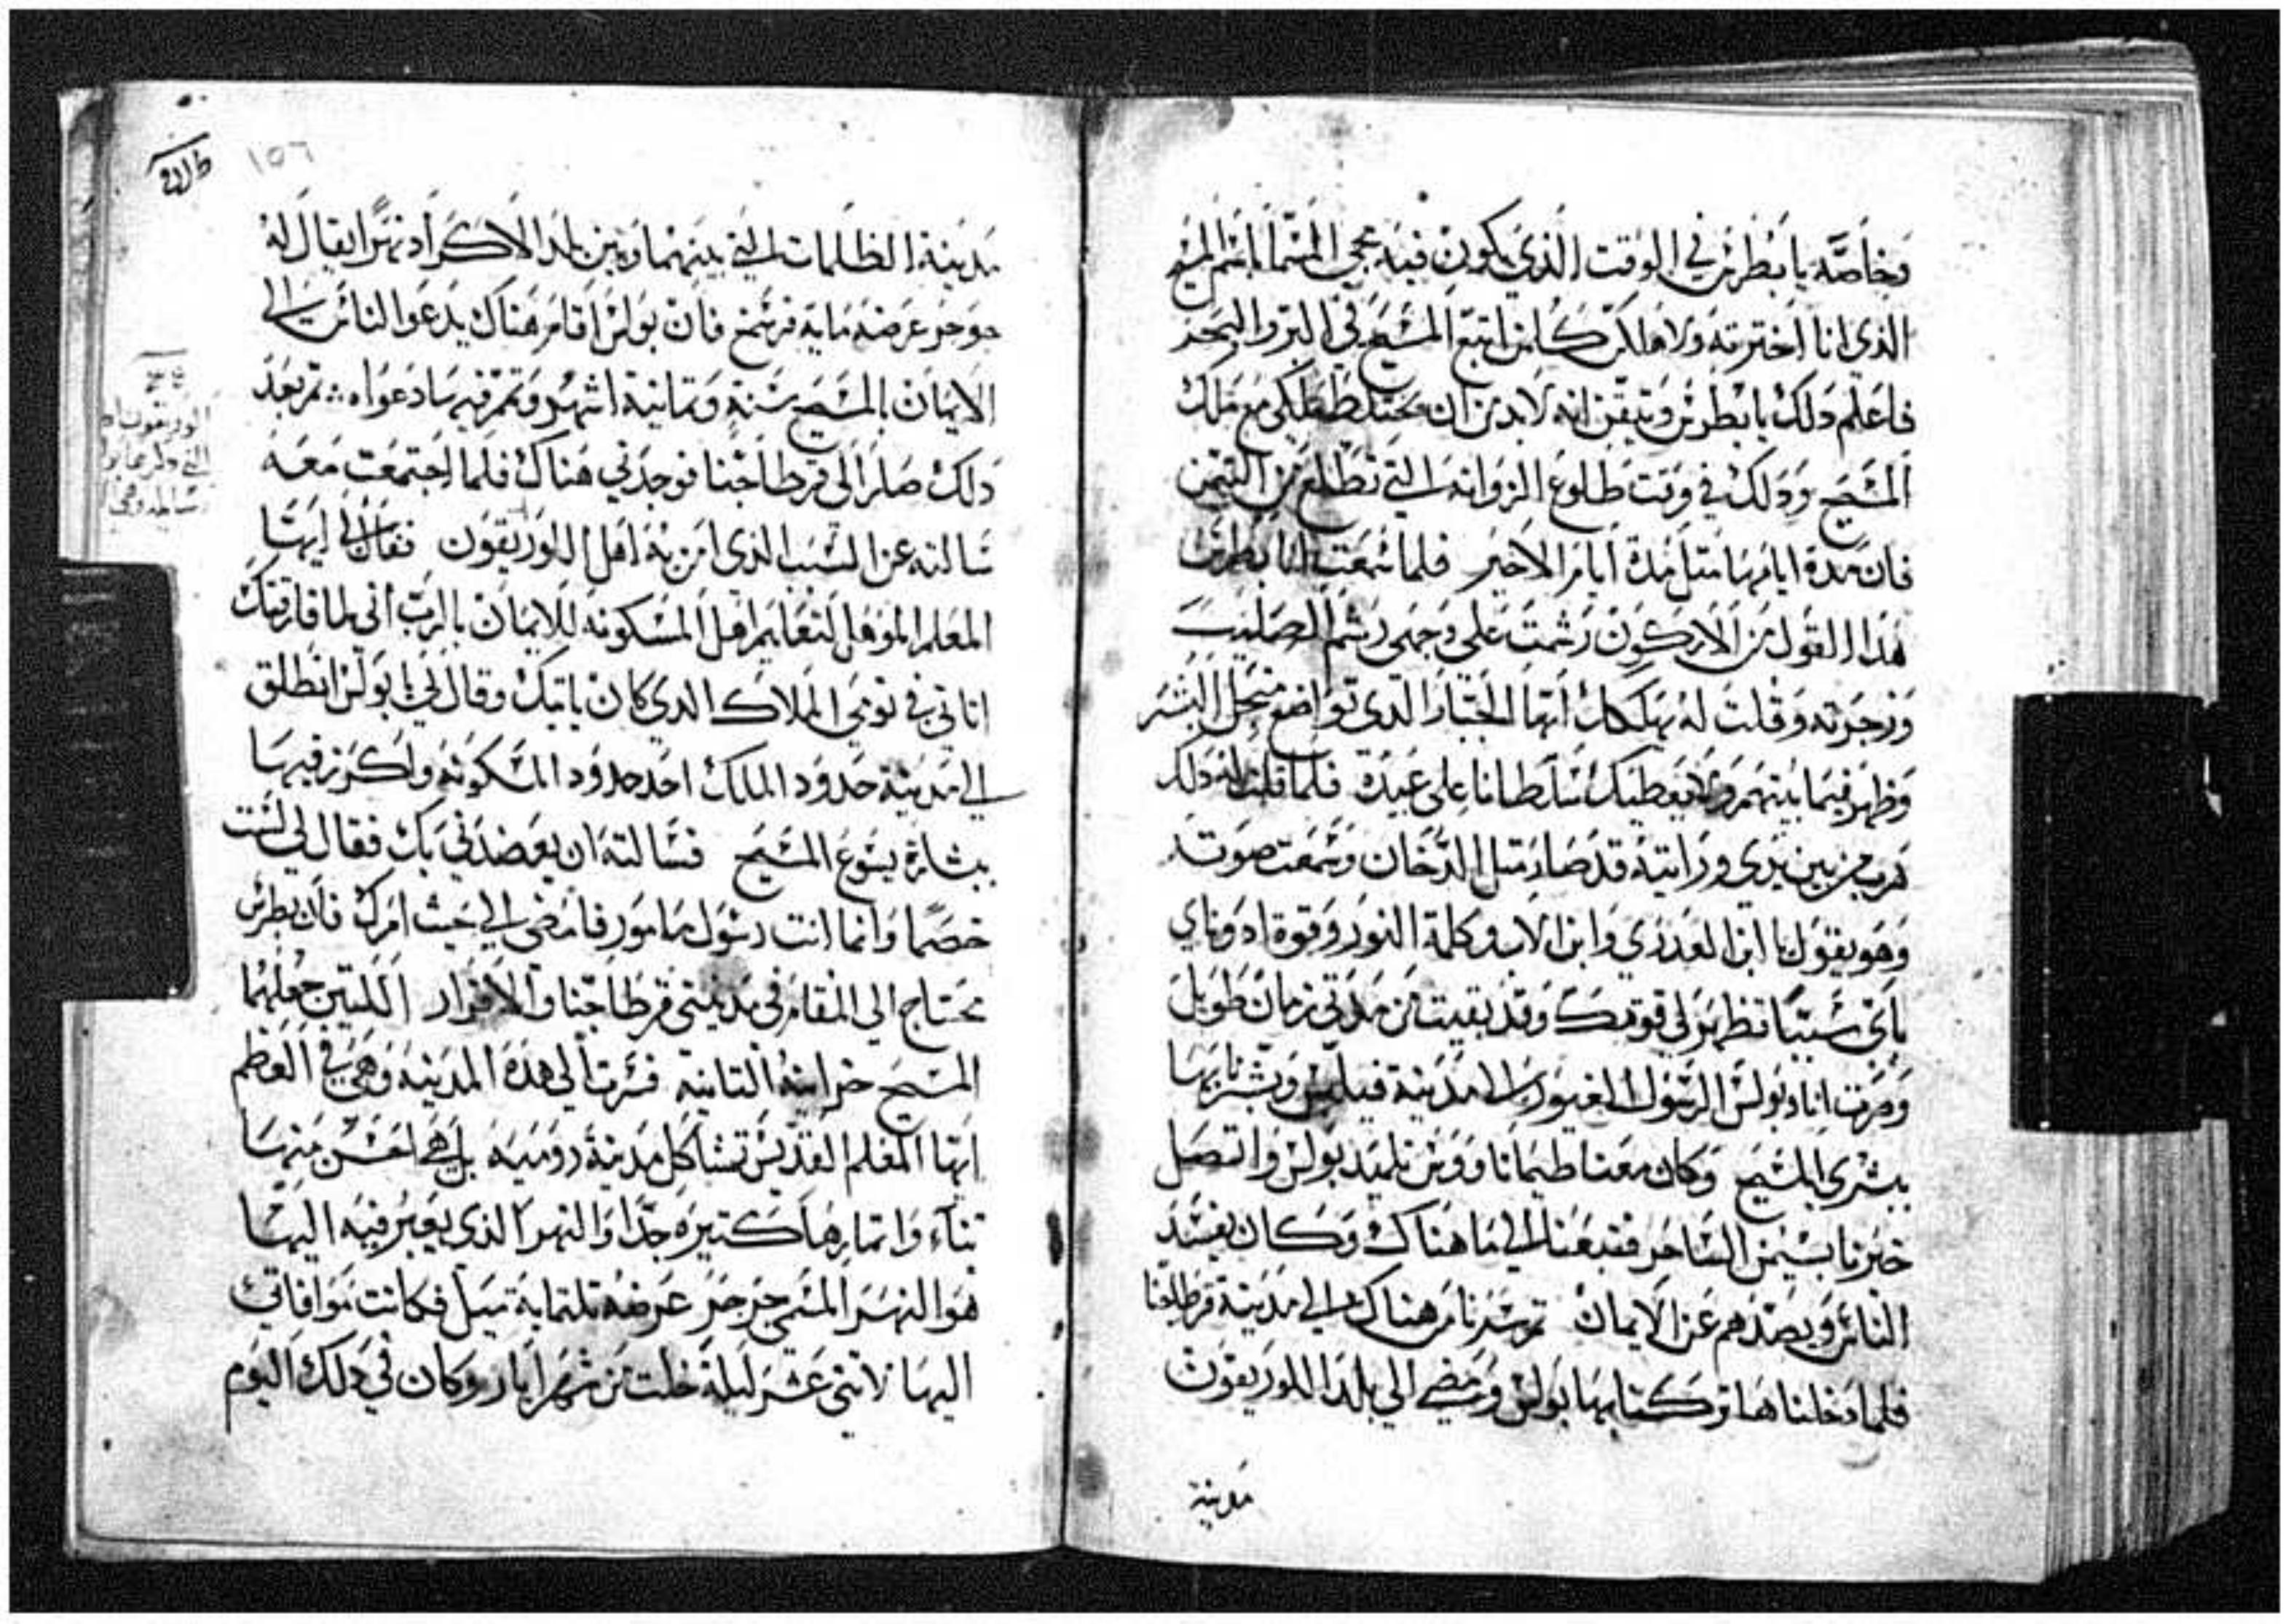 وخاصه يا بطرس في الوقت الذي يكون فيه مجي المسما باسم المسيح
الذي انا اخترته ولاهلكن كل من اتبع المسيح في البر والبحر
فاعلم دلك يا بطرس وتيقن انه لا بد من ان ملك
المسيح ودلك في وقت طلوع الزوانه التي تطلع من التيمن
فان مدة ايامها متل مدة ايام الاخير فلما سمعت انا بطرس
هدا القول من الاركون رشمت على وجهي رشم الصليب
وزجرته وقلت له يهلكك ايها الجبار الدي تواضع من اجل البشر
وظهر فيما بينهم ولا يعطيك سلطانا على عبيده فلما قلت له دلك
هرب من بين يدي ورايته قد صار متل الدخان وسمعت صوته
وهو يقول يا ابن العدري وابن الاب وكلمة النور وقوة ادوناي
باي شيئا تظهر لي قوتك وقد بقيت من مدتي زمان طويل
وصرت انا وبولس الرسول الغيور الى مدينة فيلبس وبشرنا بها
بشرى المسيح وكان معنا طيماتاووس تلميد بولس واتصل
خبرنا بسيمن الساحر فتبعنا الى ما هناك وكان يفسد
الناس ويصدهم عن الايمان تم سرنا من هناك الى مدينة قرطاجنا
فلما دخلناها تركنا بها بولس ومضى الي بلد اللوريقون
مدينة
١٥٦
مدينة الظلمات التي بينهما وبين بلد الاكراد نهرا يقال له
جوجر عرضه ماية فرسخ فان بولس اقام هناك يدعوا الناس الى
الايمان بالمسيح سنة وتمانية اشهر وتمر فيها دعواه تم بعد
دلك صار الى قرطاجنا فوجدني هناك فلما اجتمعت معه
سالته عن السبب الذي امن به اهل اللوريقون فقال لي ايها
المعلم الموهل لتعليم اهل المسكونه للايمان بالرب اني لما فارقتك
اتاني في نومي الملاك الدي كان ياتيك وقال لي يا بولس انطلق
الى مدينة حدود الملك احد حدود المسكونه واكرز فيها
ببشارة يسوع المسيح فسالته ان يعضدني بك فقال لي لست
خصما وانما انت رسول مامور فامضي الى حيث امرك فان بطرس
يحتاج الى المقام في مدينتي قرطاجنا والاقرار اللتين جعلهما
المسيح خزانته التانيه فسرت الى هذه المدينه وهي في العظم
ايها المعلم القديس تشاكل مدينة روميه بل هي احسن منها
بناء واتمارها كتيره جدا والنهر الذي يعبر فيه اليها
هو النهر المسمى جرجر عرضه تلتماية ميل فكانت موافاتي
اليها لاتني عشر ليلة خلت من شهر ايار وكان في دلك اليوم